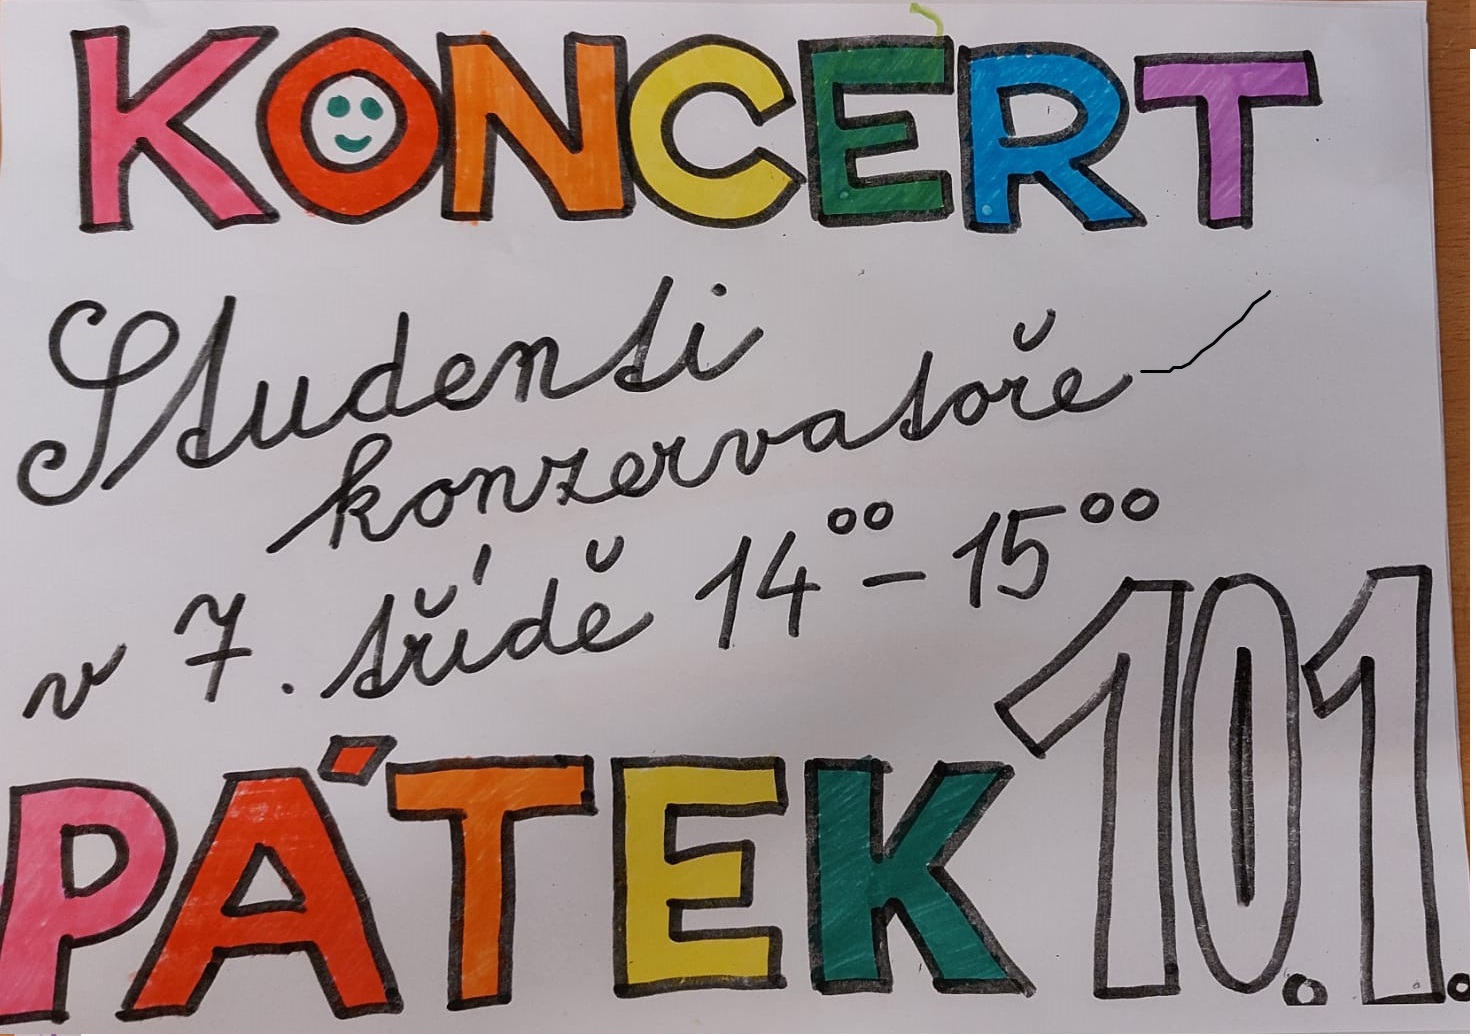 KONCERT
Studenti
konzervatoře
v 7. třídě 14⁰⁰ – 15⁰⁰
PÁTEK 10.1.